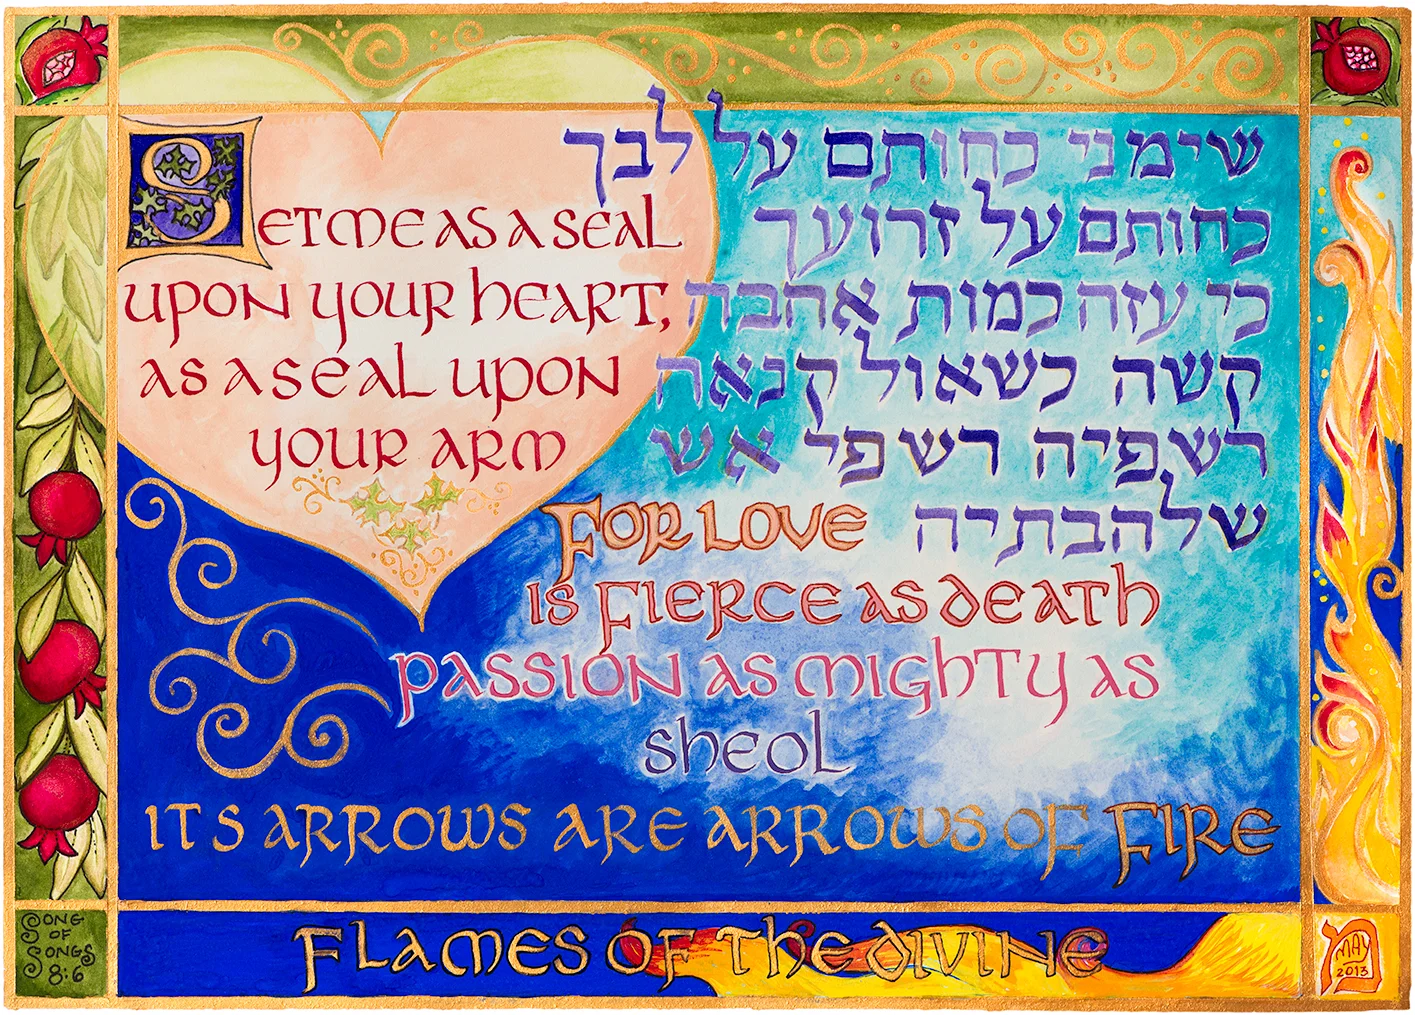 SET ME AS A SEAL
UPON YOUR HEART,
AS A SEAL UPON
YOUR ARM
שימני כחותם על לבך
כחותם על זרועך
כי עזה כמות אהבה
קשה כשאול קנאה
רשפיה רשפי אש
שלהבתיה
FOR LOVE
IS FIERCE AS DEATH
PASSION AS MIGHTY AS
SHEOL
ITS ARROWS ARE ARROWS OF FIRE
FLAMES OF THE DIVINE
SONG
OF
SONGS
8:6
MAY
2013